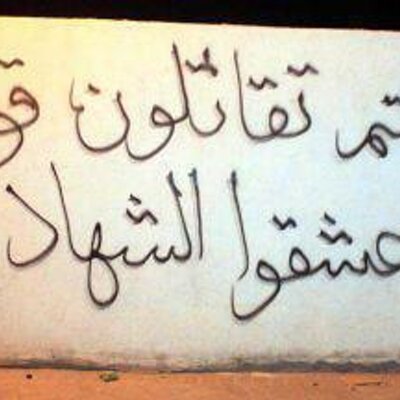 تم تقاتلون قو
عشقوا الشهاد